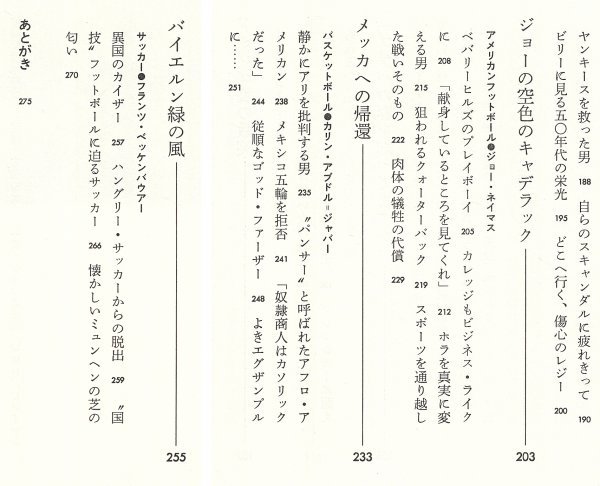 ヤンキースを救った男 188 自らのスキャンダルに疲れきって 190
ビリーに見る五〇年代の栄光 195 どこへ行く、傷心のレジー 200
ジョーの空色のキャデラック 203
アメリカンフットボール●ジョー・ネイマス
ベバリーヒルズのプレイボーイ 205 カレッジもビジネス・ライク
に 208 「献身しているところを見てくれ」 212 ホラを真実に変
える男 215 狙われるクォーターバック 219 スポーツを通り越し
た戦いそのもの 222 肉体の犠牲の代償 229
メッカへの帰還 233
バスケットボール●カリン・アブドル=ジャバー
静かにアリを批判する男 235 〝パンサー〟と呼ばれたアフロ・ア
メリカン 238 メキシコ五輪を拒否 241 「奴隷商人はカソリック
だった」 244 従順なゴッド・ファーザー 248 よきエグザンプル
に…… 251
バイエルン緑の風 255
サッカー●フランツ・ベッケンバウアー
異国のカイザー 257 ハングリー・サッカーからの脱出 259 〝国
技〟フットボールに迫るサッカー 266 懐かしいミュンヘンの芝の
匂い 270
あとがき 275